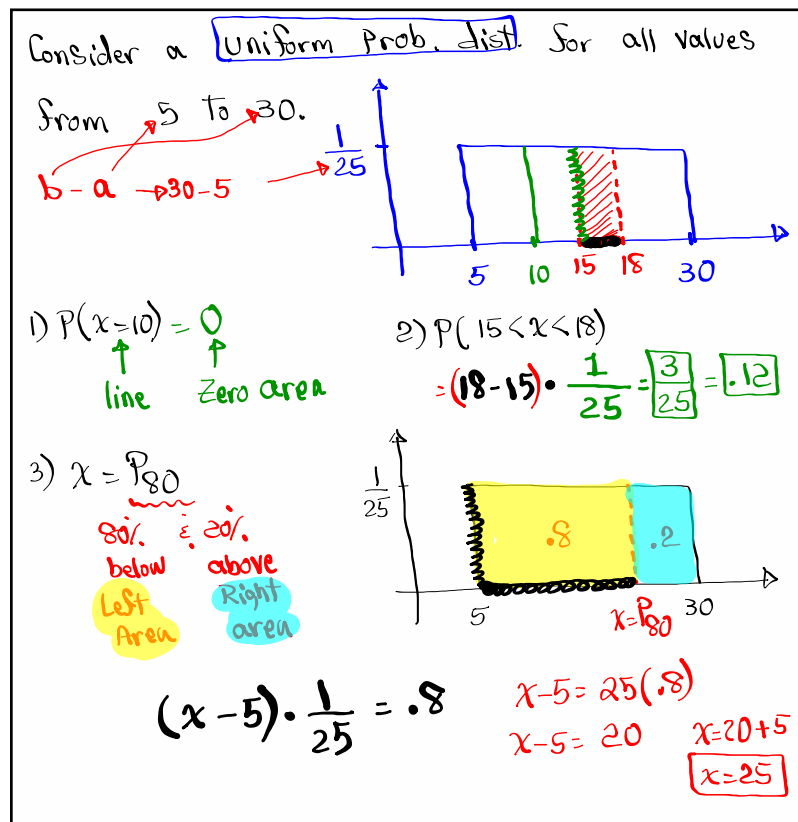 Consider a uniform prob. dist. for all values
from 5 to 30.
b - a → 30 - 5
1/25
5 10 15 18 30
1) P(x=10) = 0
line Zero area
2) P(15<x<18)
= (18-15) · 1/25 = 3/25 = .12
3) x = P80
80% & 20%
below above
Left Area
Right area
1/25
.8 .2
5 x=P80 30
(x-5) · 1/25 = .8
x-5 = 25(.8)
x-5 = 20
x=20+5
x=25